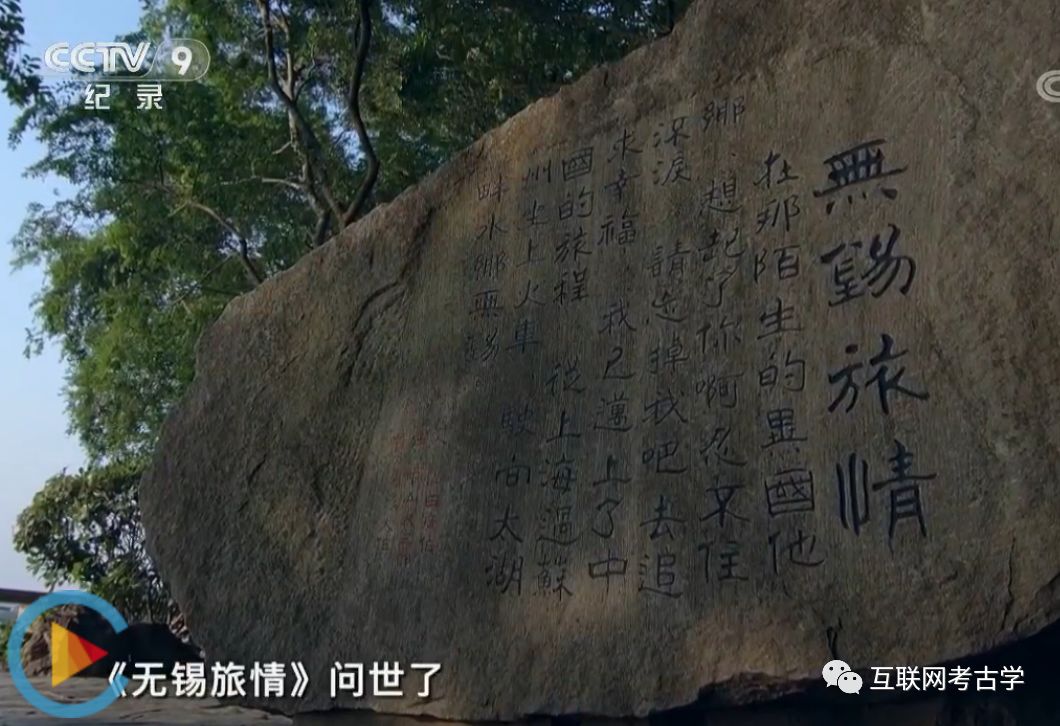 CCTV 9
纪录
無錫旅情
在那陌生的異國他
鄉 想起了你啊忍不住
流淚 請忘掉我吧去追
求幸福 我已邁上了中
國的旅程 從上海過蘇
州坐上火車 駛向太湖
畔水鄉無錫
《无锡旅情》问世了
互联网考古学